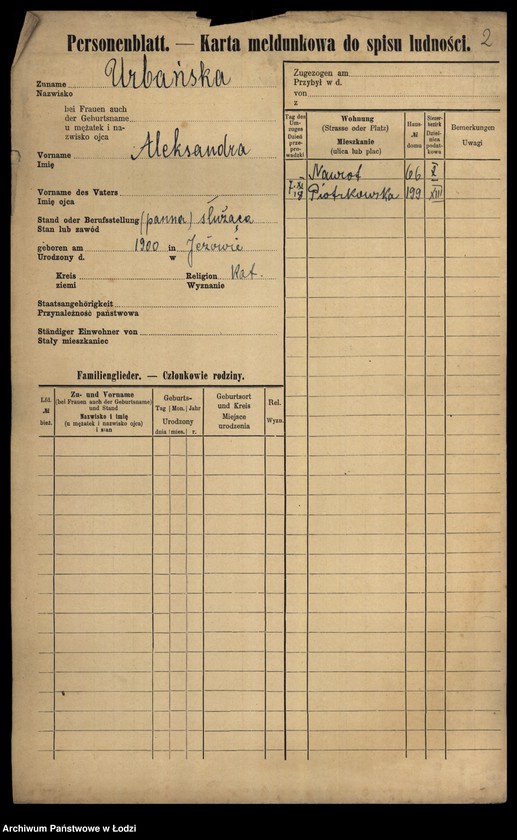 Personenblatt. — Karta meldunkowa do spisu ludności. 2
Zuname Urbańska
Nazwisko
bei Frauen auch
der Geburtsname
u mężatek i na-
zwisko ojca
Vorname Aleksandra
Imię
Vorname des Vaters
Imię ojca
Stand oder Berufsstellung (panna) służąca
Stan lub zawód
geboren am 1900 in Jeżowie
Urodzony d. w
Kreis Religion Kat.
ziemi Wyznanie
Staatsangehörigkeit
Przynależność państwowa
Ständiger Einwohner von
Stały mieszkaniec
Familienglieder. — Członkowie rodziny.
Lfd.
№
bież.
Zu- und Vorname
(bei Frauen auch der Geburtsname)
und Stand
Nazwisko i imię
(u mężatek i nazwisko ojca)
i stan
Geburts-
Tag | Mon. | Jahr
Urodzony
dnia | mies. | r.
Geburtsort
und Kreis
Miejsce
urodzenia
Rel.
Wyzn.
Zugezogen am
Przybył w d.
von
z
Tag des
Um-
zuges
Dzień
prze-
prowadzki
Wohnung
(Strasse oder Platz)
Mieszkanie
(ulica lub plac)
Haus-
№
domu
Steuer-
bezirk
Dziel-
nica
podat-
kowa
Bemerkungen
Uwagi
Nawrot 66 X
Piotrkowska 199 XIII
Archiwum Państwowe w Łodzi